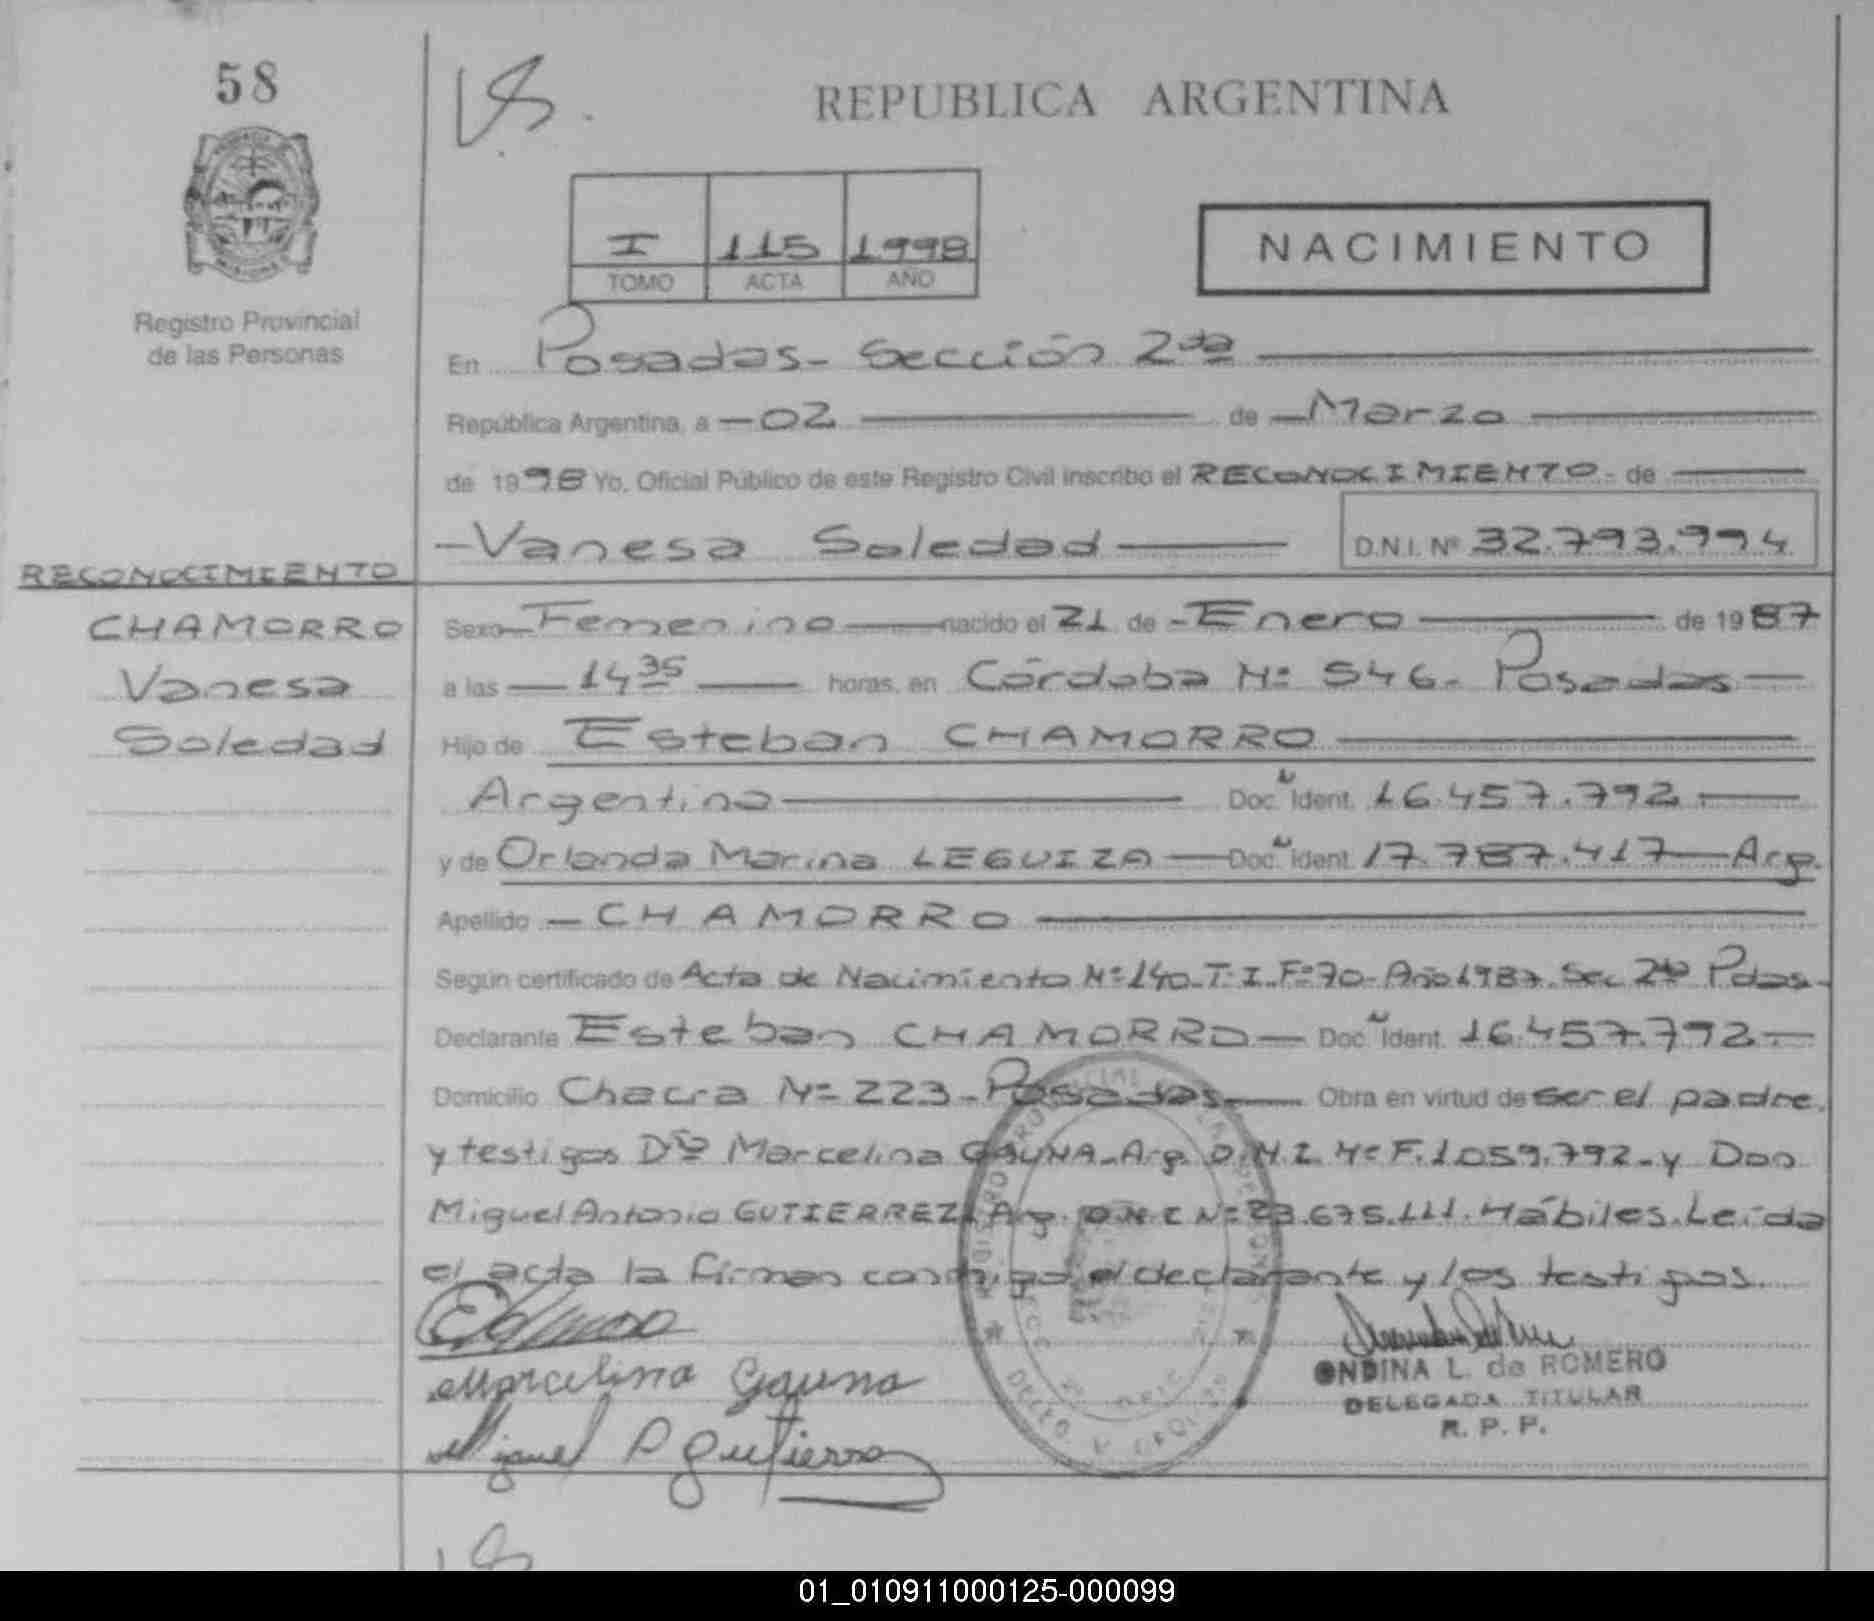 58
REPUBLICA ARGENTINA
I 115 1998
TOMO ACTA AÑO
NACIMIENTO
Registro Provincial
de las Personas
En Posadas - Sección 2da
República Argentina, a - 02 de - Marzo
de 1998 Yo, Oficial Público de este Registro Civil inscribo el RECONOCIMIENTO - de
- Vanesa Soledad D.N.I. Nº 32.793.994
RECONOCIMIENTO
CHAMORRO
Vanesa
Soledad
Sexo Femenino nacido el 21 de - Enero de 1987
a las 14 35 horas, en Córdoba Nº 546 - Posadas
Hijo de Esteban CHAMORRO
Argentino Doc. Ident. 16.457.792
y de Orlanda Marina LEGUIZA Doc. Ident. 17.787.417 Arg.
Apellido - CHAMORRO
Según certificado de Acta de Nacimiento Nº 140 - T. I. Fº 70 - Año 1987. Sec 2da Pdas -
Declarante Esteban CHAMORRO Doc. Ident. 16.457.792
Domicilio Chacra Nº 223 - Posadas Obra en virtud de ser el padre
y testigos Dña Marcelina GAUNA - Arg. D.N.I. Nº F. 1.059.792 - y Don
Miguel Antonio GUTIERREZ Arg. D.N.I Nº 23.675.111. Hábiles. Leída
el acta la firman conmigo el declarante y los testigos.
Marcelina Gauna
Miguel A Gutierrez
ONDINA L. de ROMERO
DELEGADA TITULAR
R. P. P.
01_010911000125-000099